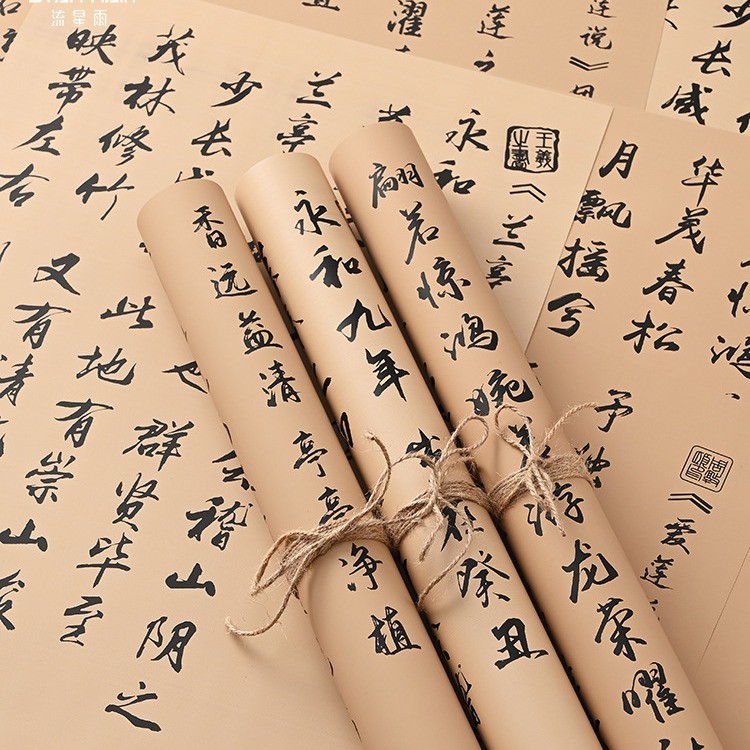 流星雨
香远益清 亭亭净植
永和九年 岁在癸丑
翩若惊鸿 婉若游龙 荣曜
映带左右
茂林修竹
少长
兰亭
永和
王羲之书
《兰亭
又有清
此地有崇山
群贤毕至
会稽山阴之
濯
莲之
莲说》
少长咸
月飘摇兮
华茂春松
惊鸿
予独
《爱莲